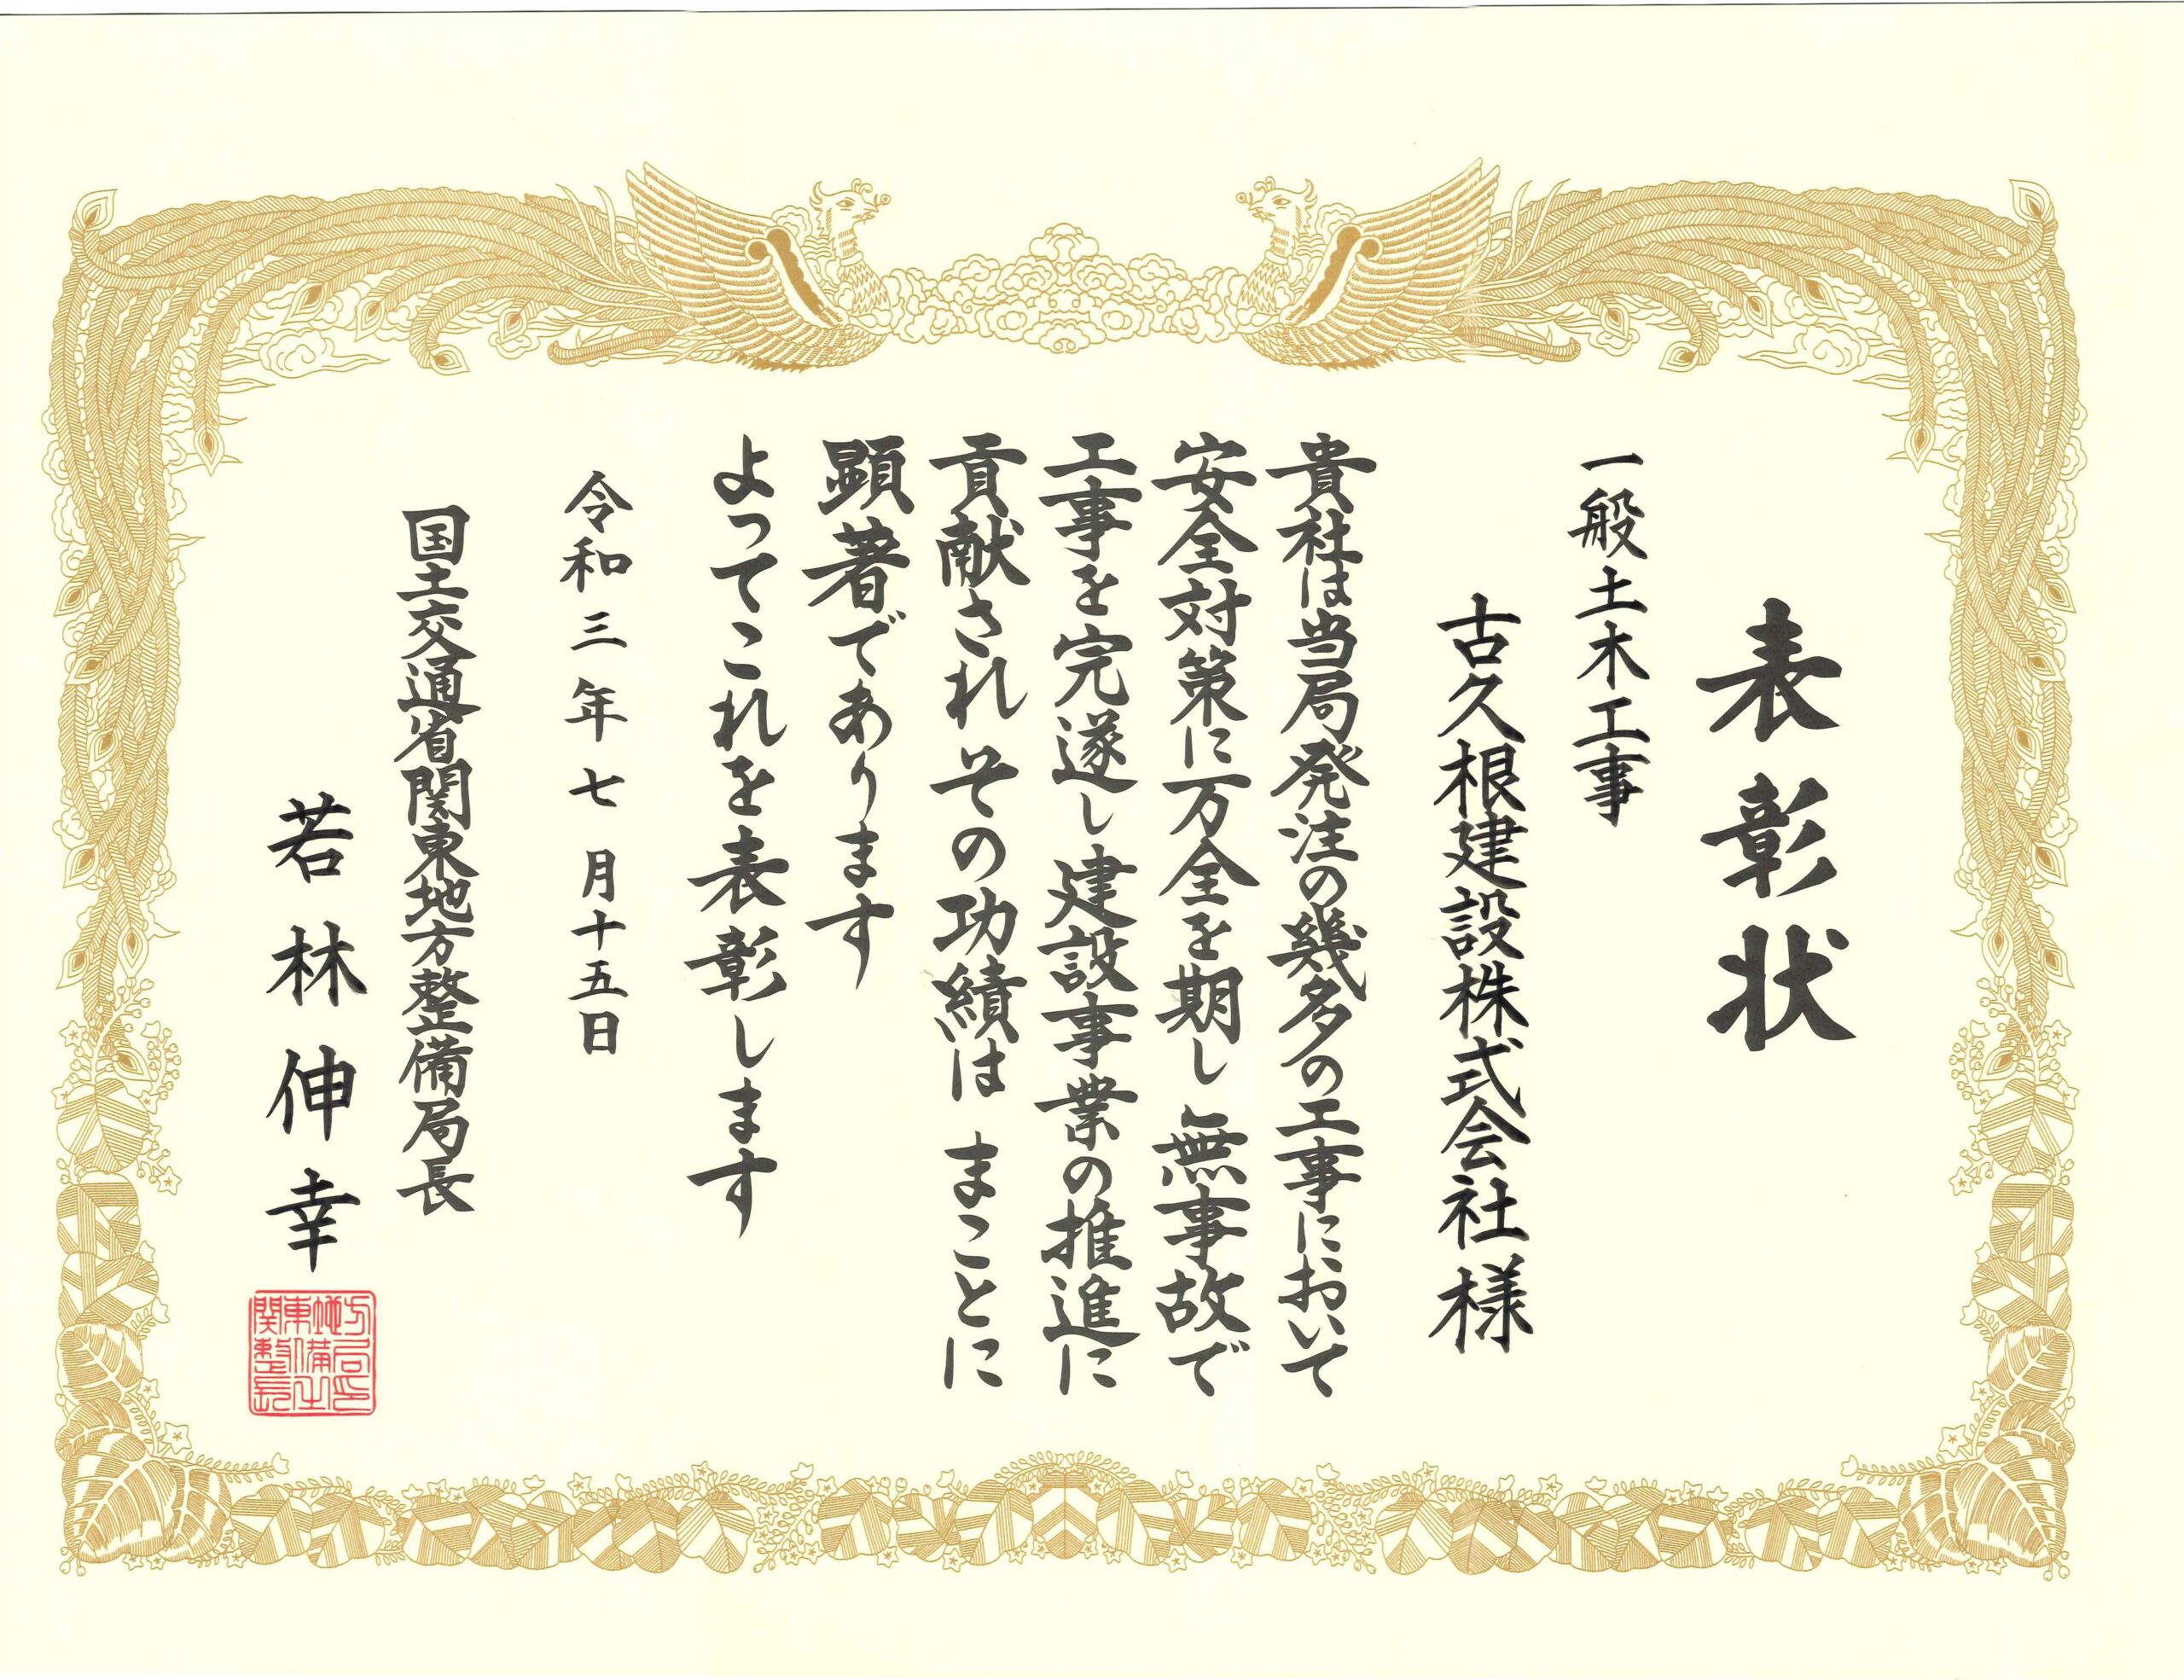 表彰状
一般土木工事
古久根建設株式会社様
貴社は当局発注の幾多の工事において
安全対策に万全を期し 無事故で
工事を完遂し 建設事業の推進に
貢献されその功績は まことに
顕著であります
よってこれを表彰します
令和三年七月十五日
国土交通省関東地方整備局長
若林伸幸